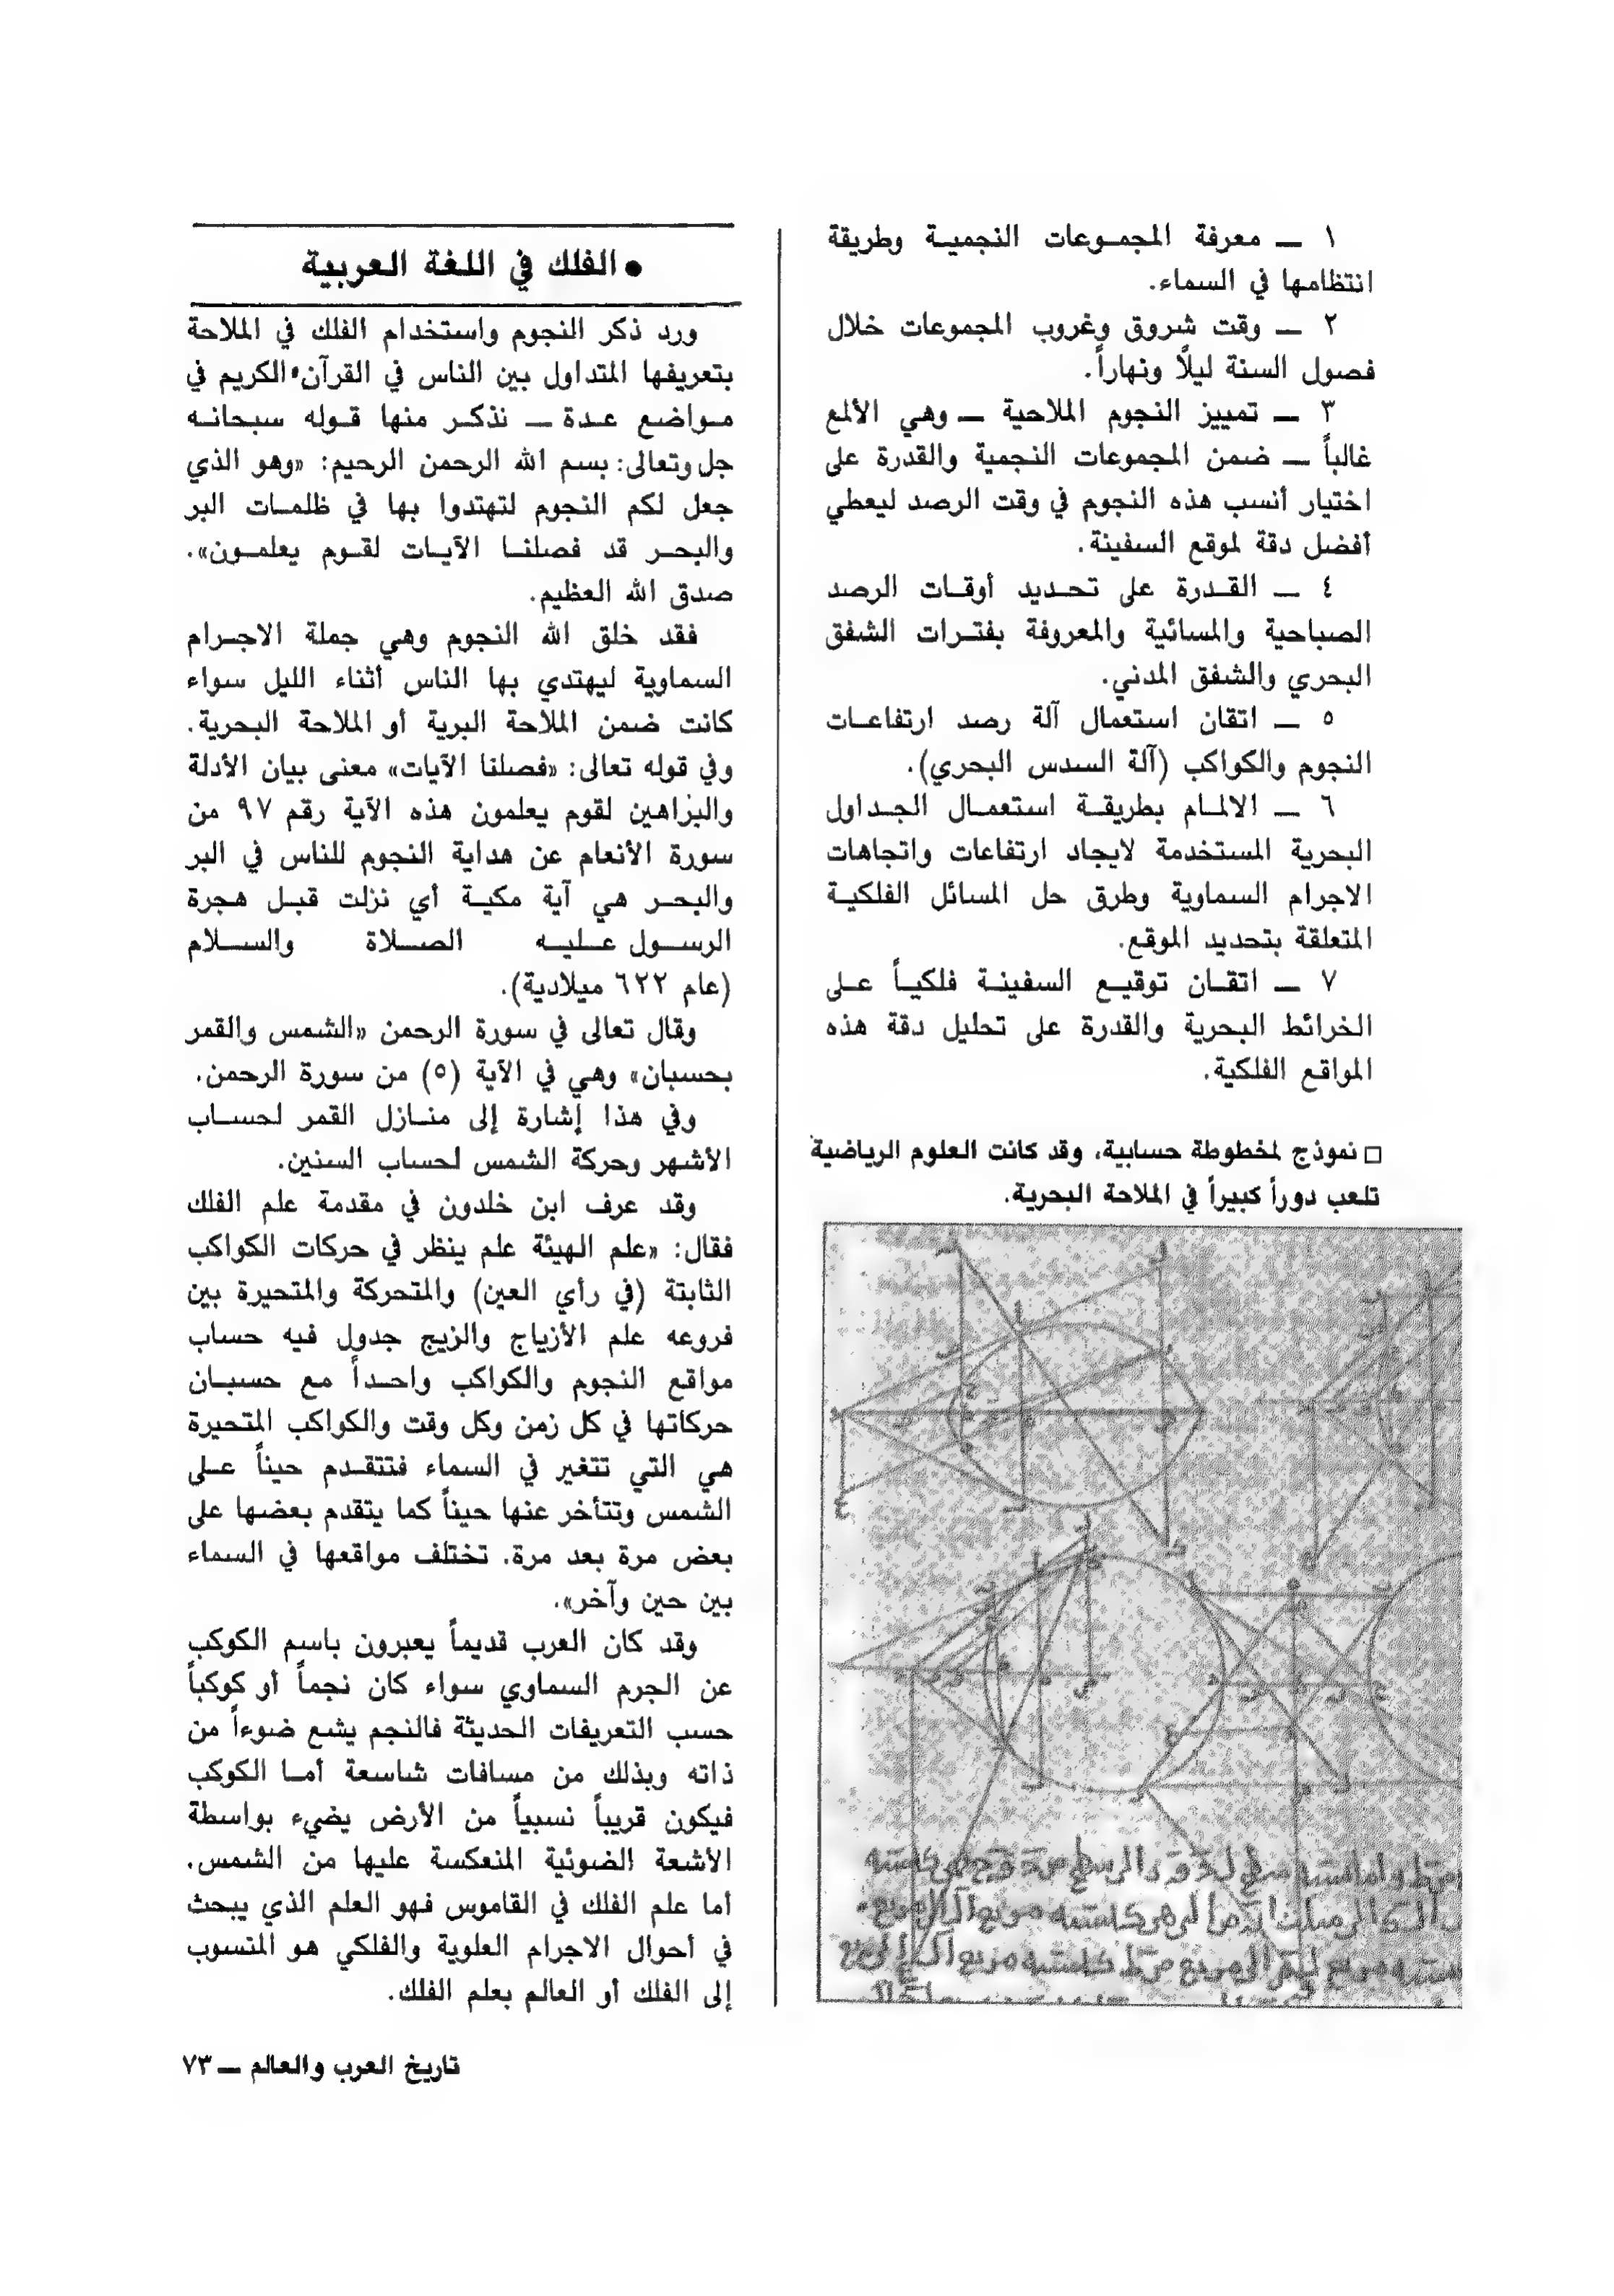 ١ — معرفة المجموعات النجمية وطريقة
انتظامها في السماء.
٢ — وقت شروق وغروب المجموعات خلال
فصول السنة ليلًا ونهاراً.
٣ — تمييز النجوم الملاحية — وهي الألمع
غالباً — ضمن المجموعات النجمية والقدرة على
اختيار أنسب هذه النجوم في وقت الرصد ليعطي
أفضل دقة لموقع السفينة.
٤ — القدرة على تحديد أوقات الرصد
الصباحية والمسائية والمعروفة بفترات الشفق
البحري والشفق المدني.
٥ — اتقان استعمال آلة رصد ارتفاعات
النجوم والكواكب (آلة السدس البحري).
٦ — الالمام بطريقة استعمال الجداول
البحرية المستخدمة لايجاد ارتفاعات واتجاهات
الاجرام السماوية وطرق حل المسائل الفلكية
المتعلقة بتحديد الموقع.
٧ — اتقان توقيع السفينة فلكياً على
الخرائط البحرية والقدرة على تحليل دقة هذه
المواقع الفلكية.
□ نموذج لمخطوطة حسابية، وقد كانت العلوم الرياضية
تلعب دوراً كبيراً في الملاحة البحرية.
● الفلك في اللغة العربية
ورد ذكر النجوم واستخدام الفلك في الملاحة
بتعريفها المتداول بين الناس في القرآن الكريم في
مواضع عدة — نذكر منها قوله سبحانه
جل وتعالى: بسم الله الرحمن الرحيم: «وهو الذي
جعل لكم النجوم لتهتدوا بها في ظلمات البر
والبحر قد فصلنا الآيات لقوم يعلمون».
صدق الله العظيم.
فقد خلق الله النجوم وهي جملة الاجرام
السماوية ليهتدي بها الناس أثناء الليل سواء
كانت ضمن الملاحة البرية أو الملاحة البحرية.
وفي قوله تعالى: «فصلنا الآيات» معنى بيان الأدلة
والبراهين لقوم يعلمون هذه الآية رقم ٩٧ من
سورة الأنعام عن هداية النجوم للناس في البر
والبحر هي آية مكية أي نزلت قبل هجرة
الرسول عليه الصلاة والسلام
(عام ٦٢٢ ميلادية).
وقال تعالى في سورة الرحمن «الشمس والقمر
بحسبان» وهي في الآية (٥) من سورة الرحمن.
وفي هذا إشارة إلى منازل القمر لحساب
الأشهر وحركة الشمس لحساب السنين.
وقد عرف ابن خلدون في مقدمة علم الفلك
فقال: «علم الهيئة علم ينظر في حركات الكواكب
الثابتة (في رأي العين) والمتحركة والمتحيرة بين
فروعه علم الأزياج والزيج جدول فيه حساب
مواقع النجوم والكواكب واحداً مع حسبان
حركاتها في كل زمن وكل وقت والكواكب المتحيرة
هي التي تتغير في السماء فتتقدم حيناً على
الشمس وتتأخر عنها حيناً كما يتقدم بعضها على
بعض مرة بعد مرة. تختلف مواقعها في السماء
بين حين وآخر».
وقد كان العرب قديماً يعبرون باسم الكوكب
عن الجرم السماوي سواء كان نجماً أو كوكباً
حسب التعريفات الحديثة فالنجم يشع ضوءاً من
ذاته وبذلك من مسافات شاسعة أما الكوكب
فيكون قريباً نسبياً من الأرض يضيء بواسطة
الأشعة الضوئية المنعكسة عليها من الشمس.
أما علم الفلك في القاموس فهو العلم الذي يبحث
في أحوال الاجرام العلوية والفلكي هو المنسوب
إلى الفلك أو العالم بعلم الفلك.
تاريخ العرب والعالم — ٧٣